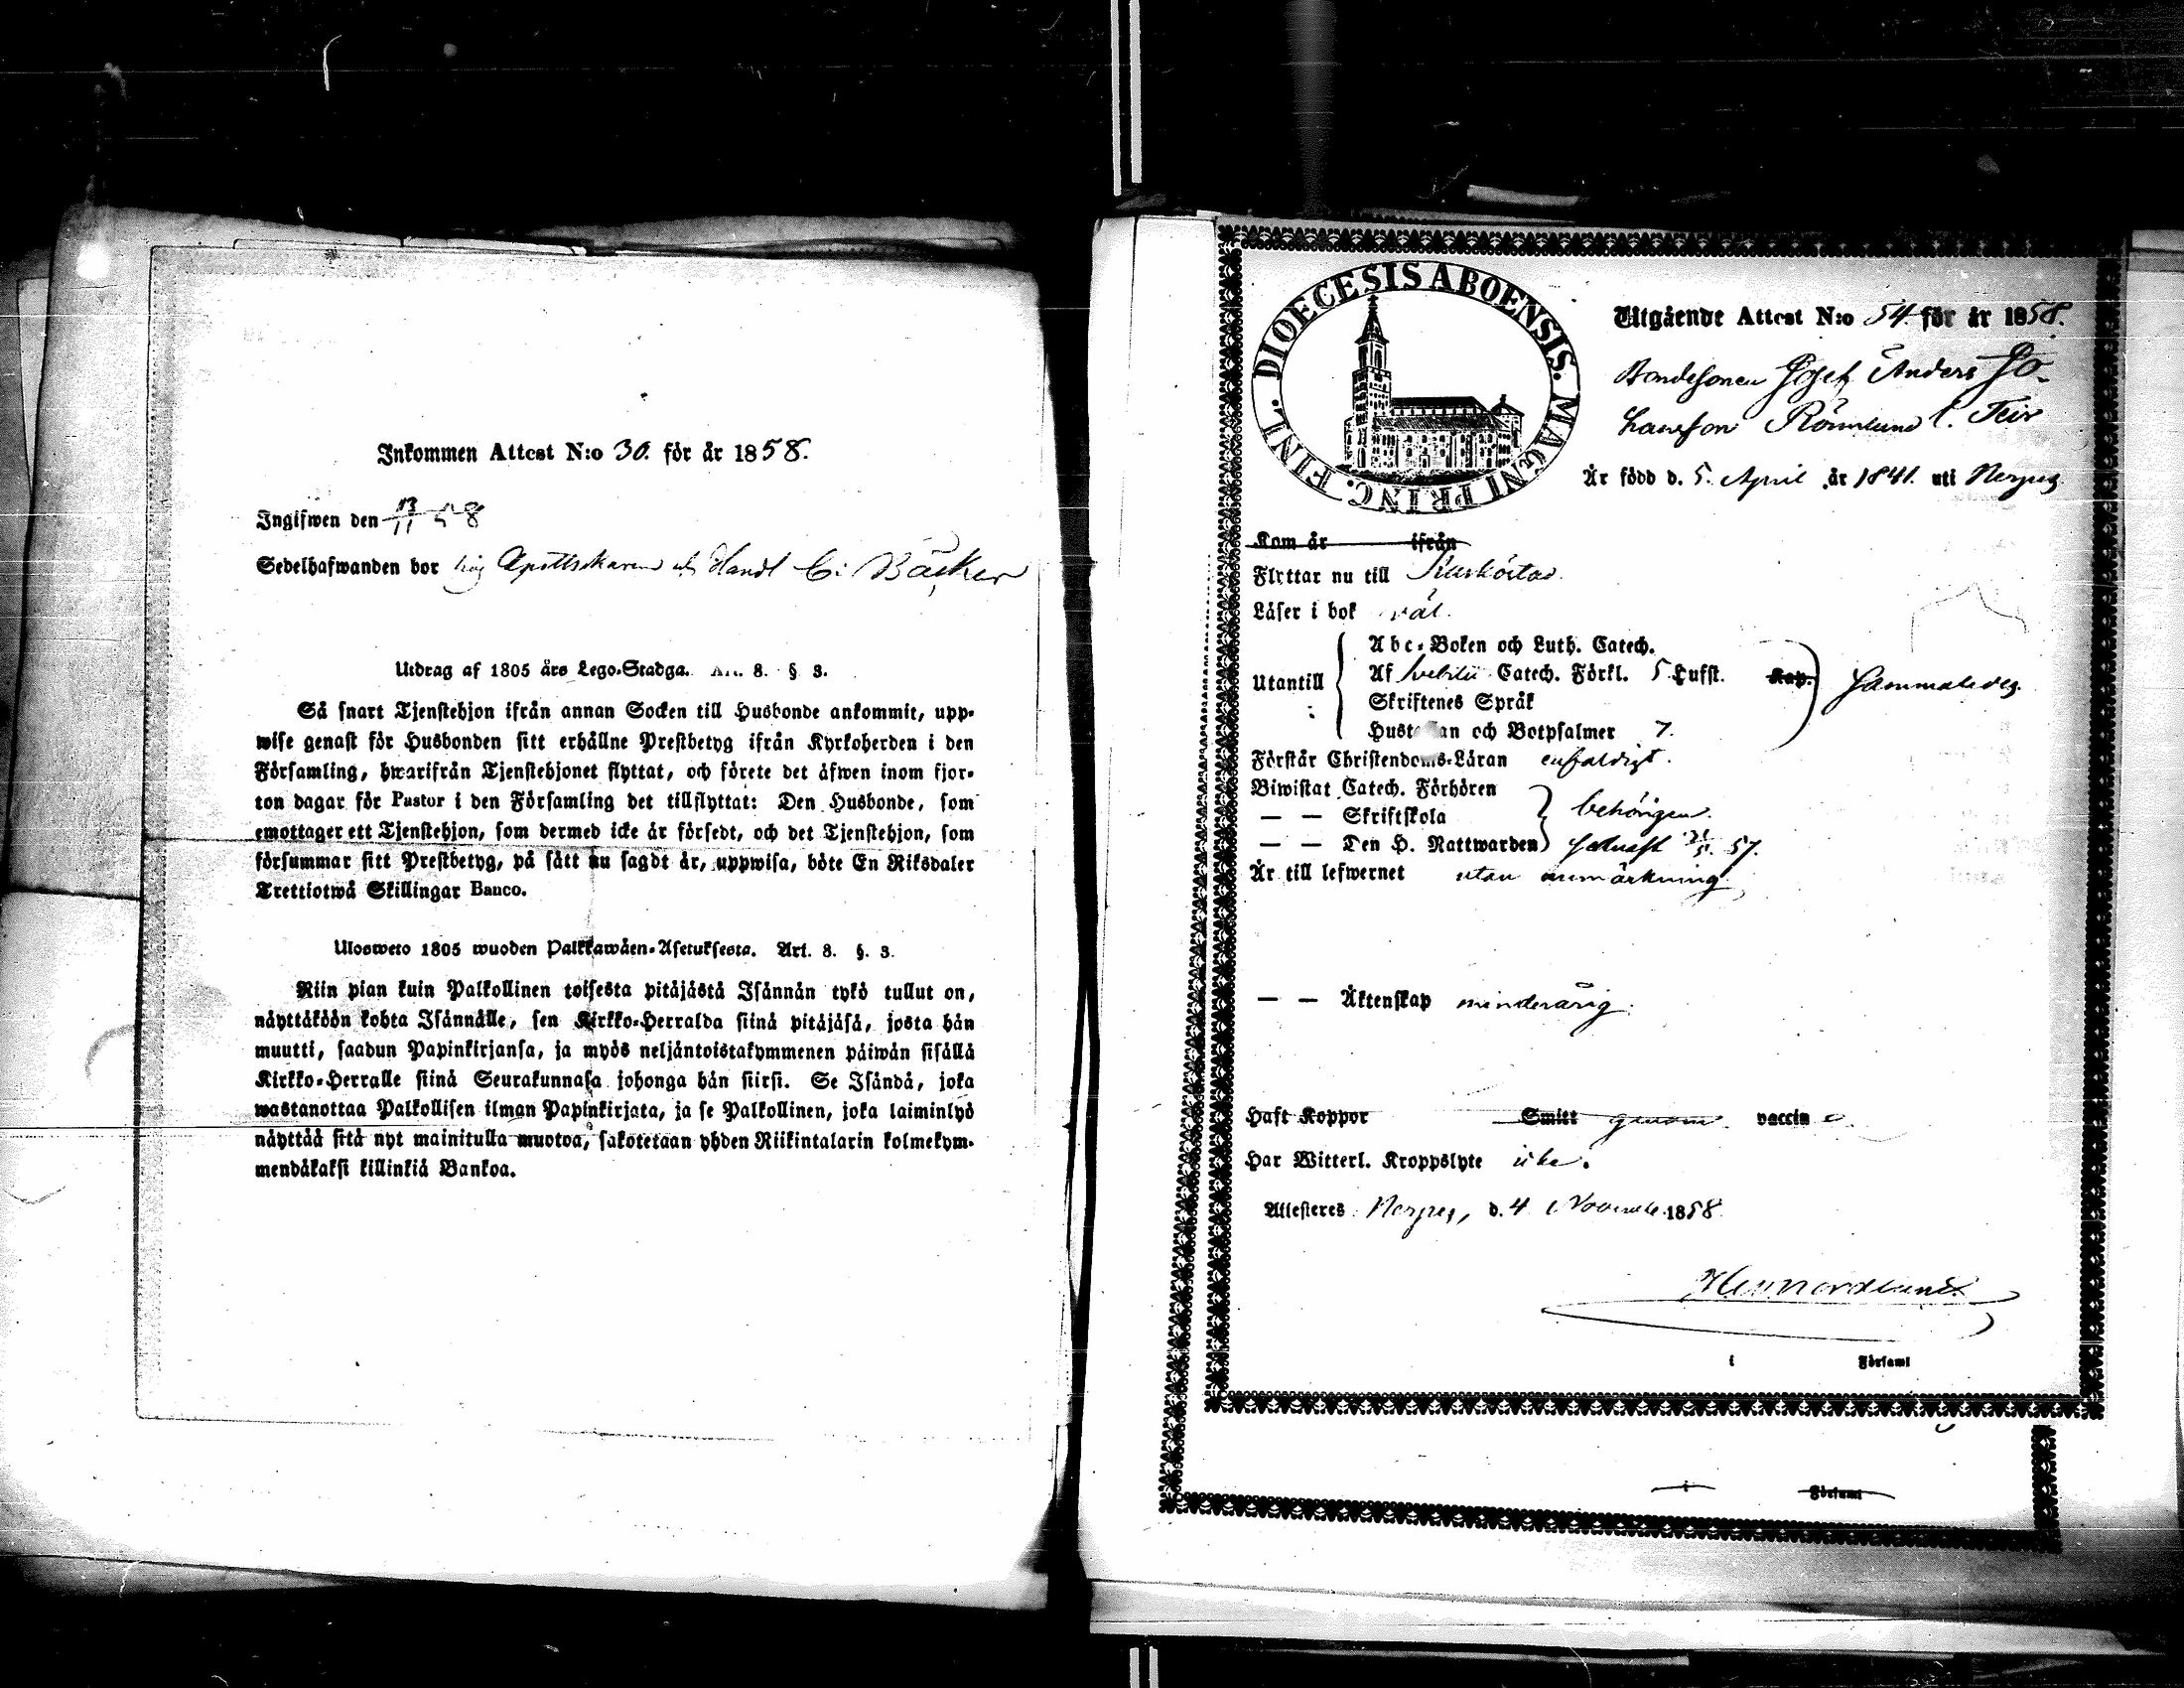 Inkommen Attest N:o 30. för år 1858.
Ingifwen den 58
Sedelhafwanden bor hos Apothekaren Handl Bäcker
Utdrag af 1805 års Lego-Stadga. Art. 8. § 3.
Så snart Tjenstehjon ifrån annan Socken till Husbonde ankommit, upp-
wise genast för Husbonden sitt erhållne Prestbetyg ifrån Kyrkoherden i den
Församling, hwarifrån Tjenstehjonet flyttat, och förete det äfwen inom fjor-
ton dagar för Pastor i den Församling det tillflyttat: Den Husbonde, som
emottager ett Tjenstehjon, som dermed icke är försedt, och det Tjenstehjon, som
försummar sitt Prestbetyg, på sätt nu sagdt är, uppwisa, böte En Riksdaler
Trettiotwå Skillingar Banco.
Ulosweto 1805 wuoden Palkkawäen-Asetuksesta. Art. 8. §. 3.
Niin pian kuin Palkollinen toisesta pitäjästä Isännän tykö tullut on,
näyttäköön kohta Isännälle, sen Kirkko-Herralda siinä pitäjäsä, josta hän
muutti, saadun Papinkirjansa, ja myös neljäntoistakymmenen päiwän sisällä
Kirkko-Herralle siinä Seurakunnasa johonga hän siirsi. Se Isändä, joka
wastanottaa Palkollisen ilman Papinkirjata, ja se Palkollinen, joka laiminlyö
näyttää sitä nyt mainitulla muotoa, sakotetaan yhden Riikintalarin kolmekym-
mendäkaksi killinkiä Bankoa.
DIOECESIS ABOENSIS. MAGNI PRINC. FINL.
Utgående Attest N:o 54. för år 1858.
Bondesonen Josef Anders Jo-
hansson Rönnlund l. Teir
Är född d. 5. April år 1841. uti Nerpes
Kom år ifrån
Flyttar nu till Kaskö stad.
Läser i bok väl.
Utantill
Abc-Boken och Luth. Catech.
Af Svebilii Catech. Förkl. 5 Lufst. Kap.
Skriftenes Språk
Hustaflan och Botpsalmer 7.
sammaledes.
Förstår Christendoms-Läran enfaldigt.
Biwistat Catech. Förhören
— — Skriftskola
behörigen.
— — Den H. Nattwarden senast 57.
Är till lefwernet utan anmärkning,
— — Äktenskap minderårig.
Haft Koppor Smitt genom vaccin
Har Witterl. Kroppslyte icke.
Attesteres Nerpes, d. 4 Novemb. 1858.
Nordlund
i Församl
i Församl